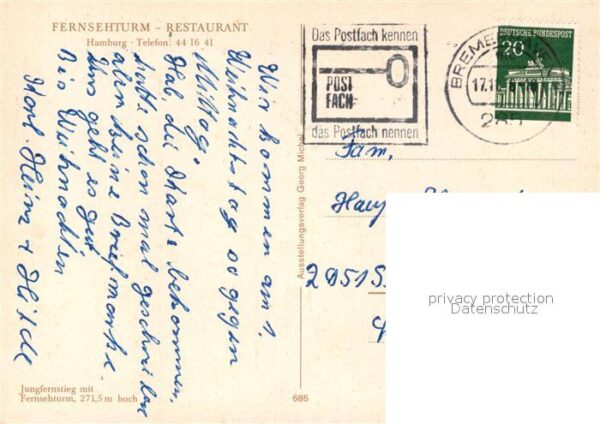 FERNSEHTURM – RESTAURANT
Hamburg · Telefon: 44 16 41
Wir kommen am 1.
Weihnachtstag so gegen
Mittag.
Hab die Karte bekommen,
hatte schon mal geschrieben
aber keine Briefmarke.
Uns geht es gut
Bis Weihnachten
Karl-Heinz + Hilde
Jungfernstieg mit
Fernsehturm, 271,5 m hoch
Ausstellungsverlag Georg Michel
685
Das Postfach kennen
POST
FACH
das Postfach nennen
BREMEN
17.11
285
DEUTSCHE BUNDESPOST
20
Fam.
2851
privacy protection
Datenschutz